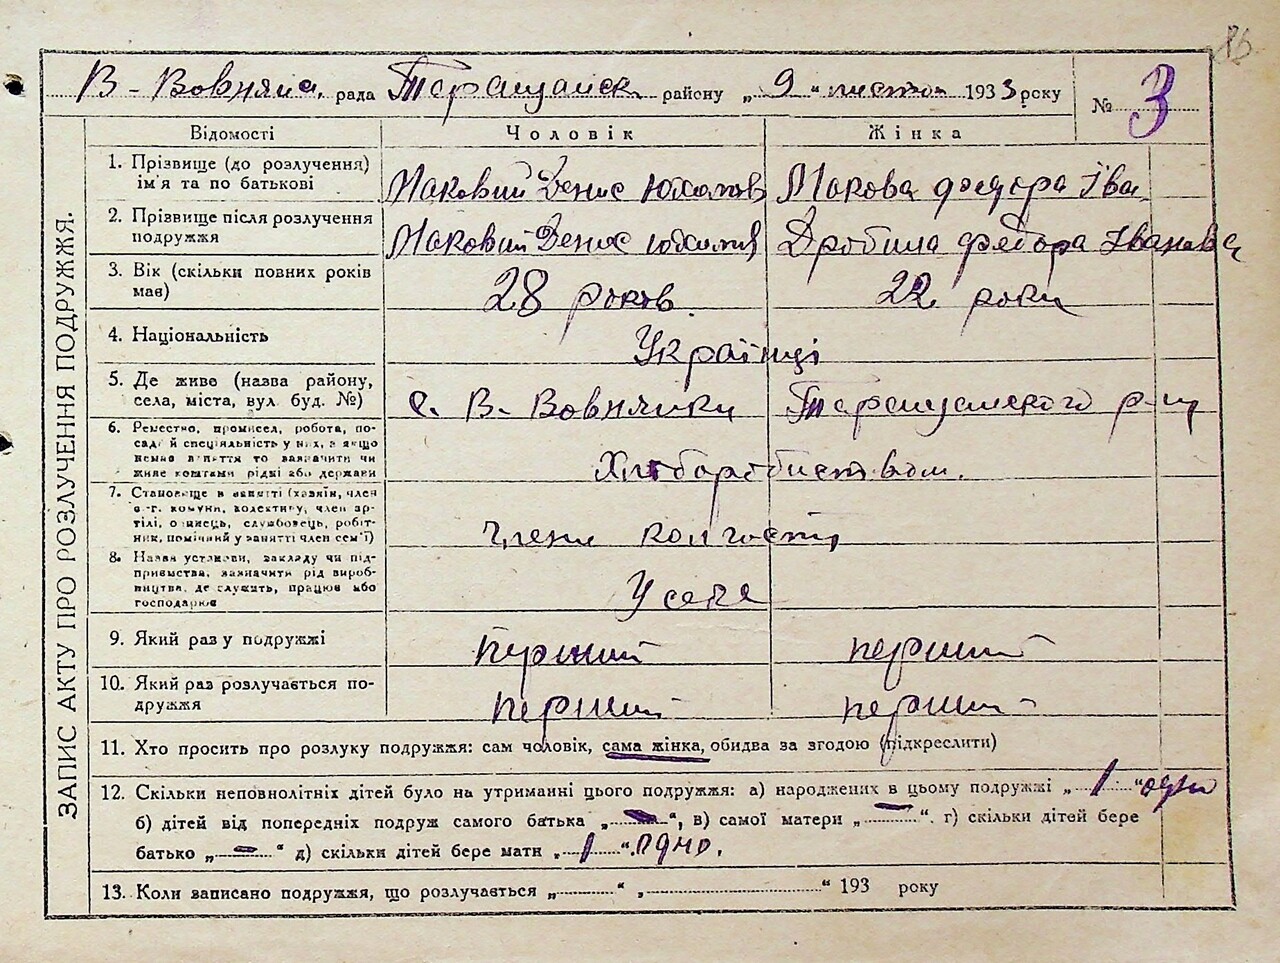 86
В - Вовнянс. рада Таращанськ. району „9“ листоп 1933 року № 3
ЗАПИС АКТУ ПРО РОЗЛУЧЕННЯ ПОДРУЖЖЯ.
Відомості Чоловік Жінка
1. Прізвище (до розлучення) ім'я та по батькові Маковий Денис Юхимов Макова Федора Іва.
2. Прізвище після розлучення подружжя Маковий Денис Юхимов Дробина Федора Іванівна
3. Вік (скільки повних років має) 28 років. 22 роки
4. Національність Українці
5. Де живе (назва району, села, міста, вул. буд. №) с. В- Вовнянки Таращанського р-ну
6. Ремество, промисел, робота, посада й спеціяльність у них, а якщо немає заняття то зазначити чи живе коштами рідні або держави Хліборобиством.
7. Становище в занятті (хазяїн, член с.-г. комуни, колективу, член артілі, одинець, службовець, робітник, помічний у занятті член сем'ї) члени колгоспу
8. Назва установи, закладу чи підприємства, зазначити рід виробництва, де служить, працює або господарює У себе
9. Який раз у подружжі перший перший
10. Який раз розлучається подружжя перший перший
11. Хто просить про розлуку подружжя: сам чоловік, сама жінка, обидва за згодою (підкреслити)
12. Скільки неповнолітніх дітей було на утриманні цього подружжя: а) народжених в цьому подружжі „1“ одно
б) дітей від попередніх подруж самого батька „—“, в) самої матери „......“. г) скільки дітей бере
батько „—“ д) скільки дітей бере мати „1“. одно.
13. Коли записано подружжя, що розлучається „......“ „......“ 193 року